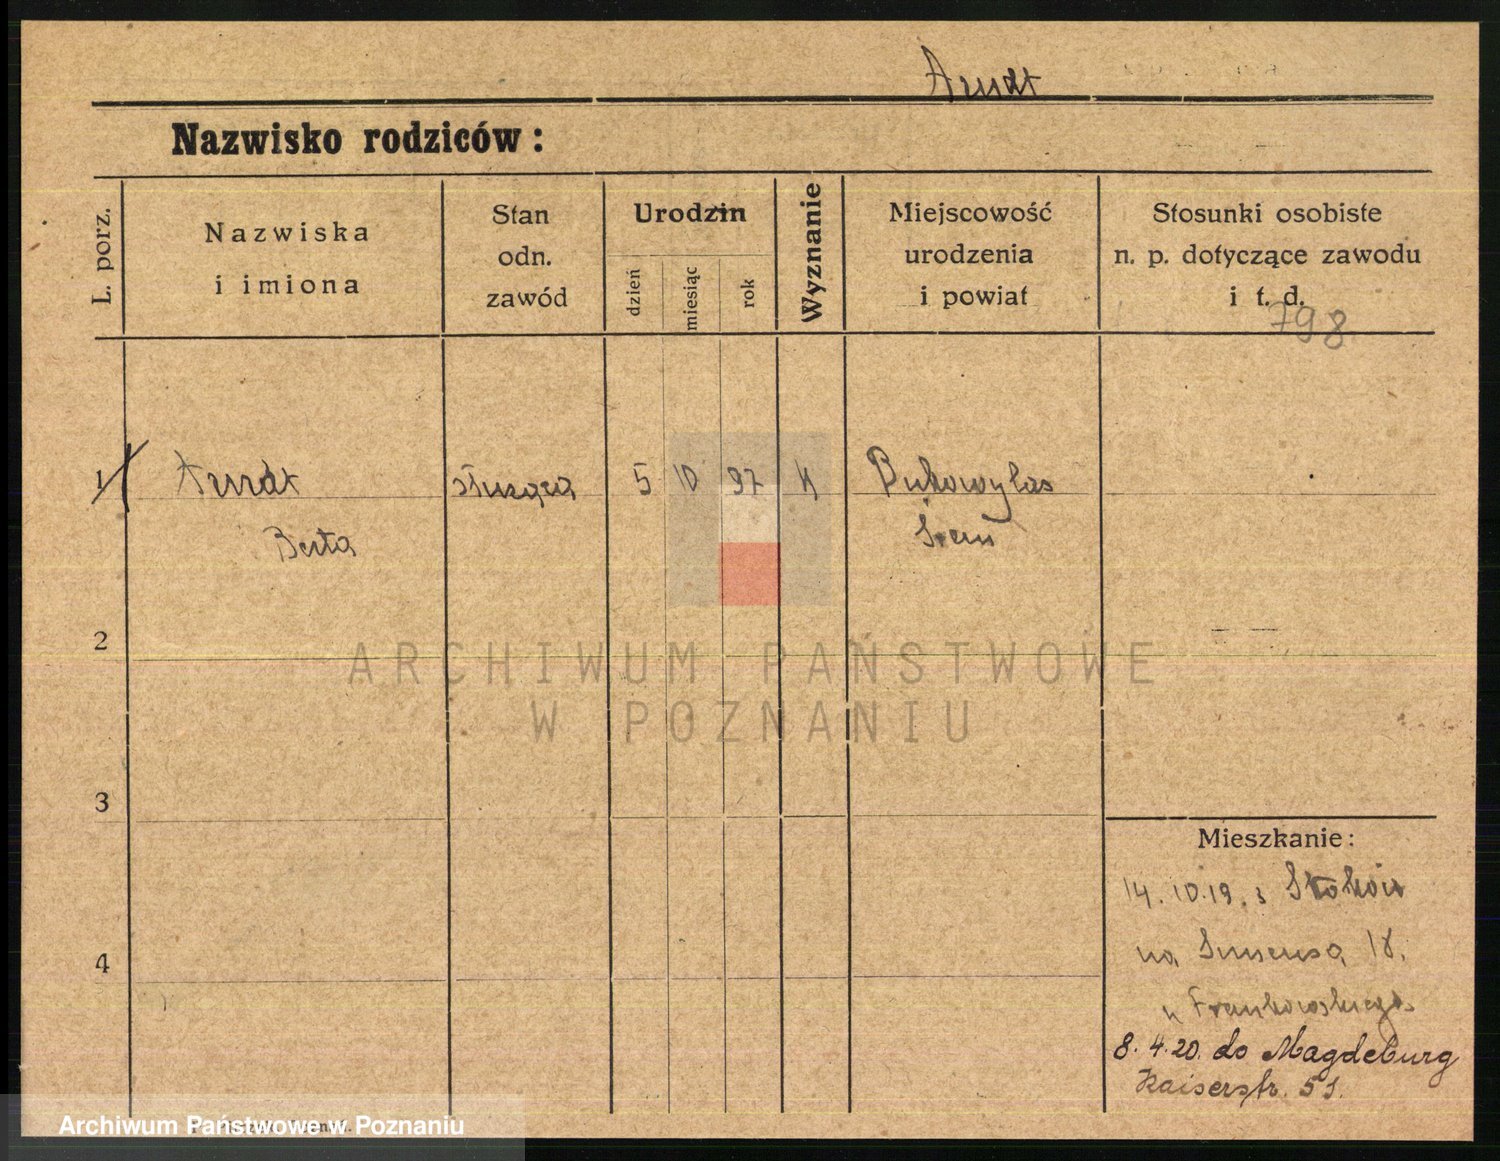 Arndt
Nazwisko rodziców:
L. porz.
Nazwiska
i imiona
Stan
odn.
zawód
Urodzin
dzień
miesiąc
rok
Wyznanie
Miejscowość
urodzenia
i powiat
Stosunki osobiste
n. p. dotyczące zawodu
i t. d.
798
1 Arndt służąca 5 10 97 Bukowylas
Berta Śrem
2
ARCHIWUM PAŃSTWOWE
W POZNANIU
3
Mieszkanie:
14.10.19. z
4
na 18.
u Frankowskiego
8.4.20. do Magdeburg
Kaiserstr. 51.
Archiwum Państwowe w Poznaniu